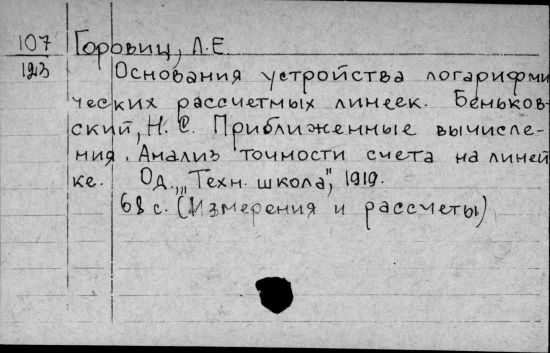 107 Горовиц, Л.Е.
1213 Основания устройства логарифми
ческих рассчетных линеек. Беньков-
ский, Н.С. Приближенные вычисле-
ния. Анализ точности счета на линей
ке. Од., „Техн. школа", 1919.
68 с. (Измерения и рассчеты)